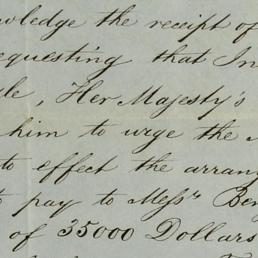 wledge the receipt of
equesting that In
le, Her Majesty's
him to urge the
to effect the arran
pay to Messrs Ben
of 35000 Dollars